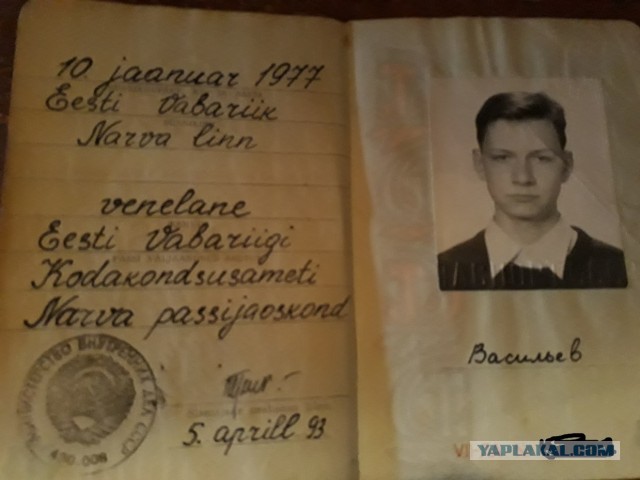 10 jaanuar 1977
Eesti Vabariik
Narva linn
venelane
Eesti Vabariigi
Kodakondsusameti
Narva passijaoskond
МИНИСТЕРСТВО ВНУТРЕННИХ ДЕЛ СССР
5. aprill 93
Васильев
YAPLAKAL.COM